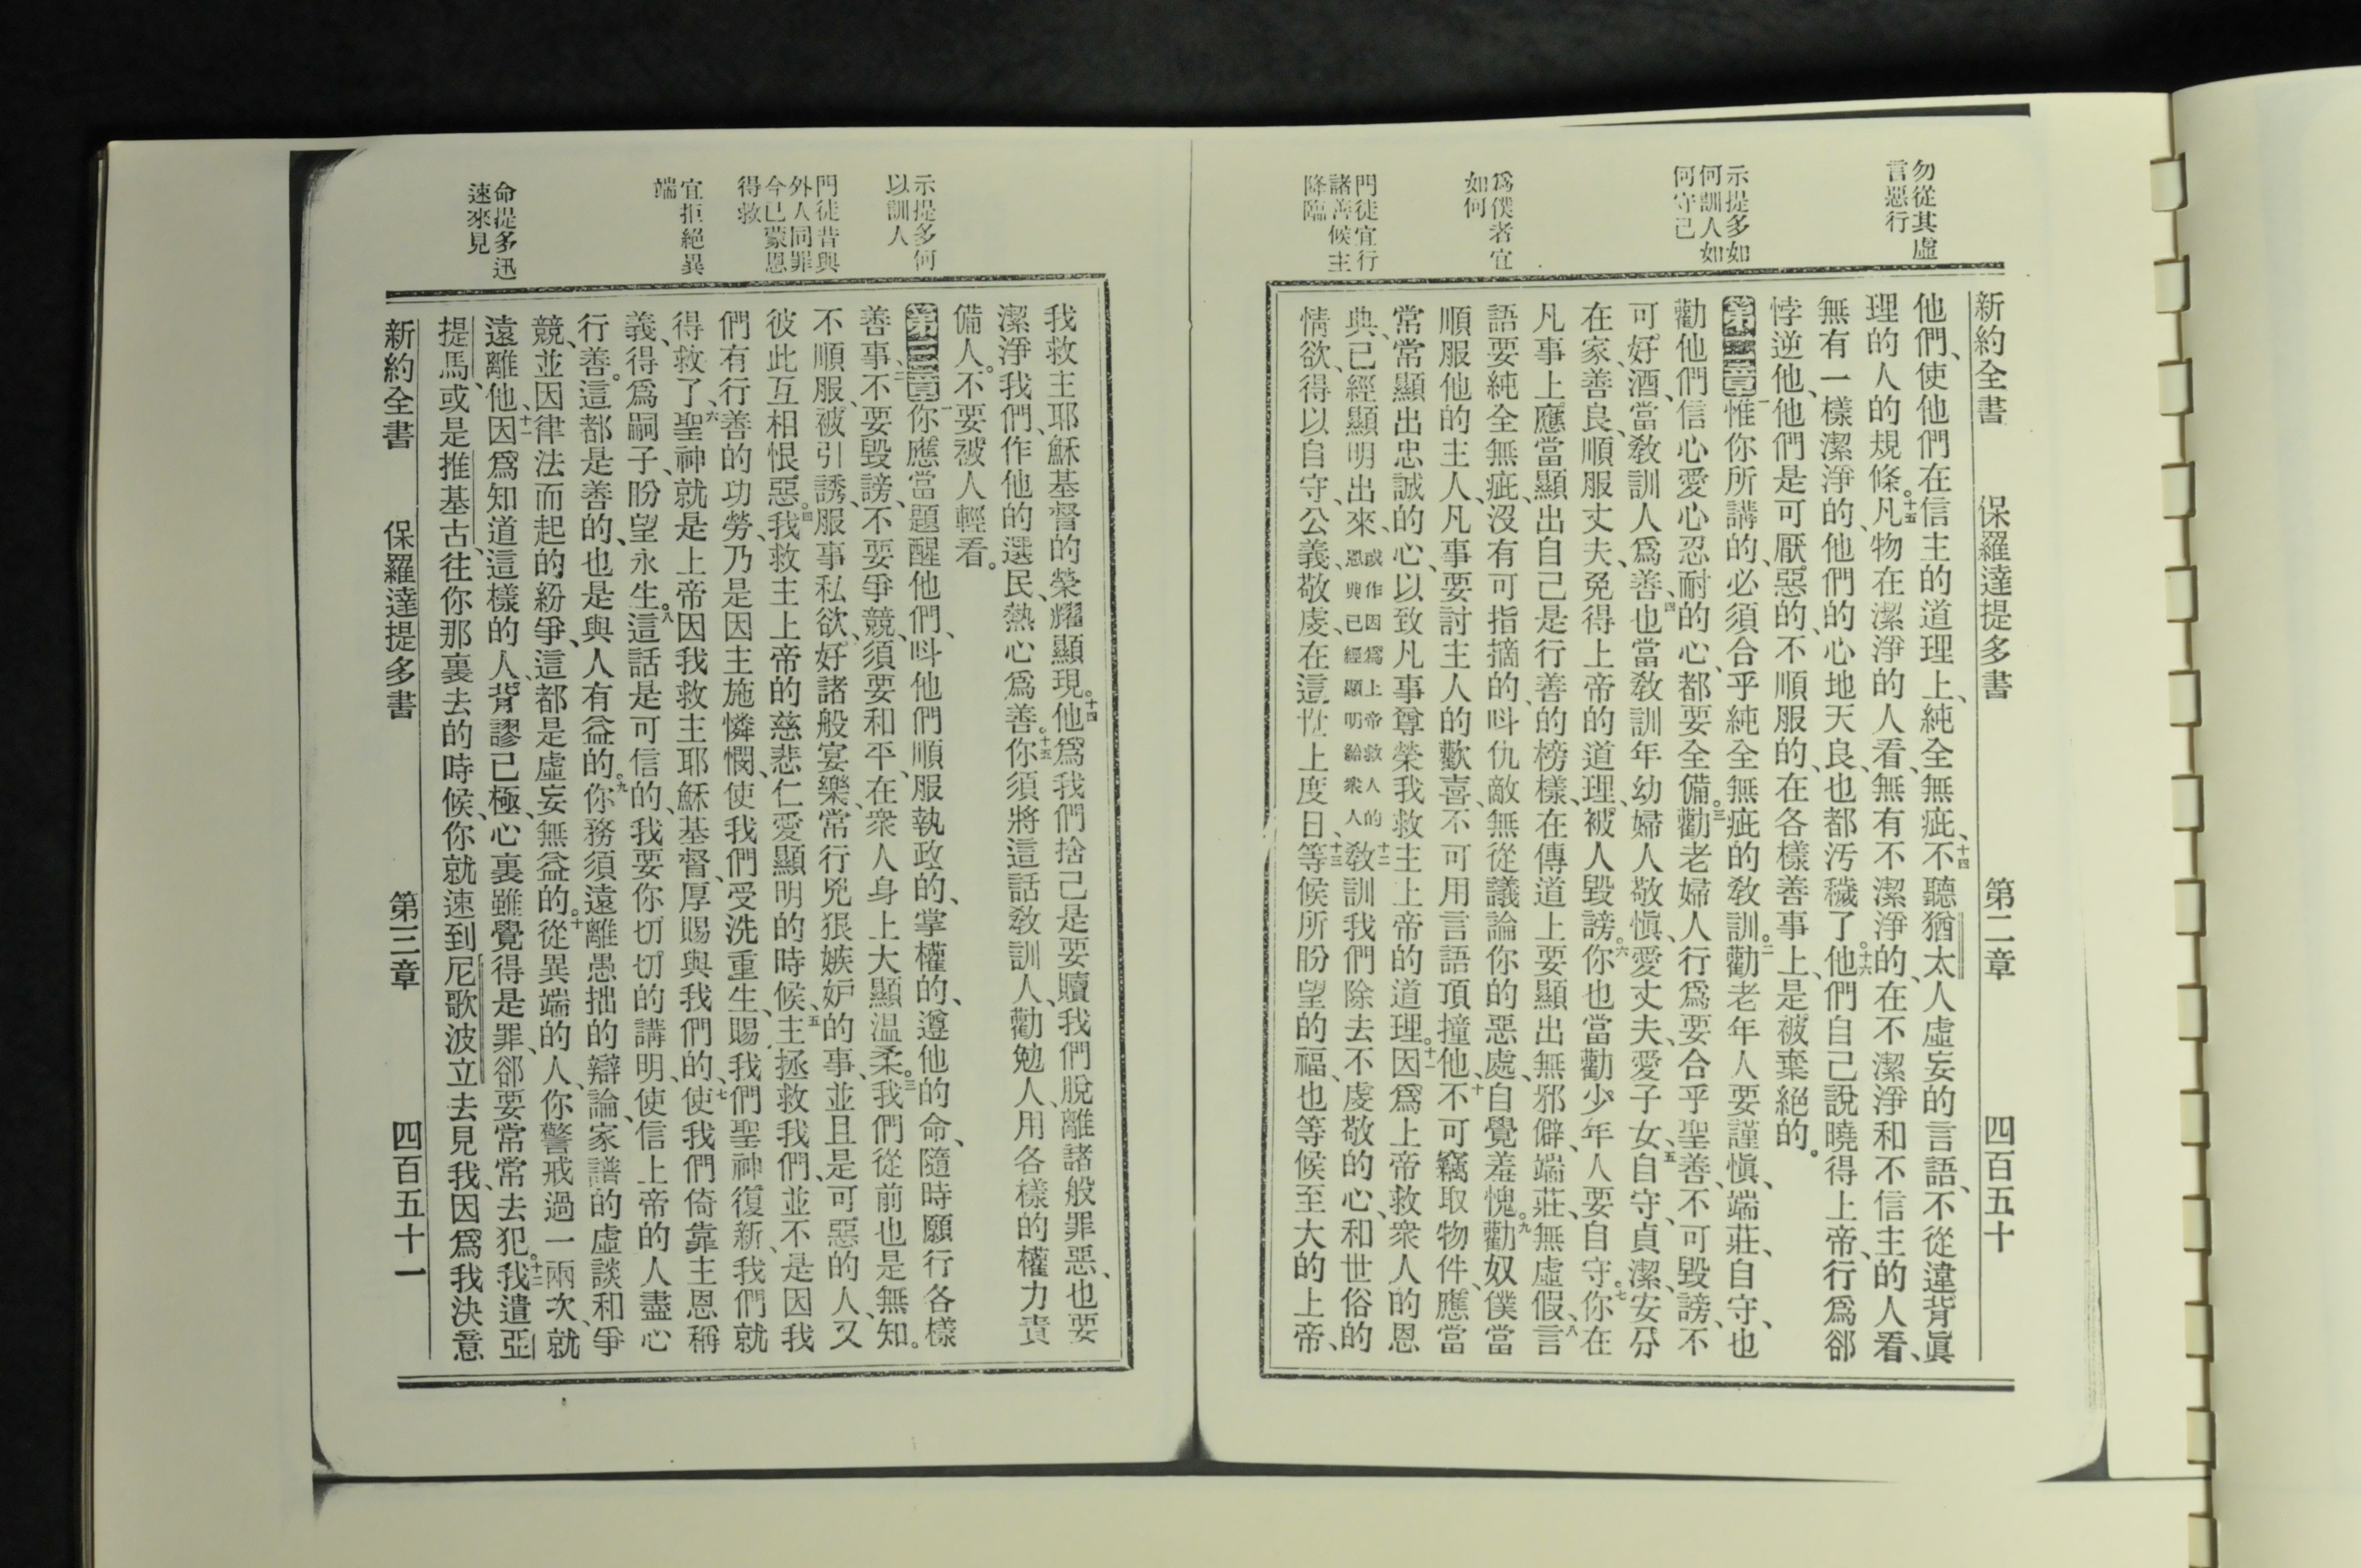 勿從其虛
言惡行
示提多如
何訓人如
何守己
爲僕者宜
如何
門徒宜行
諸善候主
降臨
新約全書 保羅達提多書 第二章 四百五十
他們、使他們在信主的道理上、純全無疵、十四不聽猶太人虛妄的言語、不從違背眞
理的人的規條。十五凡物在潔淨的人看、無有不潔淨的、在不潔淨和不信主的人看、
無有一樣潔淨的、他們的心地天良、也都汚穢了。十六他們自己說曉得上帝、行爲郤
悖逆他、他們是可厭惡的、不順服的、在各樣善事上、是被棄絕的。
第二章一惟你所講的、必須合乎純全無疵的敎訓。二勸老年人要謹愼、端莊、自守、也
勸他們信心愛心忍耐的心、都要全備。三勸老婦人行爲要合乎聖善、不可毀謗、不
可好酒、當敎訓人爲善、四也當敎訓年幼婦人敬愼、愛丈夫、愛子女、五自守、貞潔、安分
在家、善良、順服丈夫、免得上帝的道理、被人毀謗。六你也當勸少年人要自守。七你在
凡事上、應當顯出自己是行善的榜樣、在傳道上要顯出無邪僻、端莊、無虛假、八言
語要純全無疵、沒有可指摘的、呌仇敵無從議論你的惡處、自覺羞愧。九勸奴僕當
順服他的主人、凡事要討主人的歡喜、不可用言語頂撞他、十不可竊取物件、應當
常常顯出忠誠的心、以致凡事尊榮我救主上帝的道理。十一因爲上帝救衆人的恩
典、已經顯明出來、或作因爲上帝救人的恩典已經顯明給衆人十二敎訓我們除去不虔敬的心、和世俗的
情欲、得以自守、公義、敬虔、在這世上度日、十三等候所盼望的福、也等候至大的上帝、
示提多何
以訓人
門徒昔與
外人同罪
今已蒙恩
得救
宜拒絕異
端
命提多迅
速來見
我救主耶穌基督的榮耀顯現。十四他爲我們捨己是要贖我們脫離諸般罪惡、也要
潔淨我們、作他的選民、熱心爲善。十五你須將這話敎訓人、勸勉人、用各樣的權力責
備人。不要被人輕看。
第三章一你應當題醒他們、呌他們順服執政的、掌權的、遵他的命、隨時願行各樣
善事、二不要毀謗、不要爭競、須要和平、在衆人身上大顯温柔。三我們從前也是無知。
不順服、被引誘、服事私欲、好諸般宴樂、常行兇狠嫉妒的事、並且是可惡的人、又
彼此互相恨惡。四我救主上帝的慈悲仁愛顯明的時候、五主拯救我們、並不是因我
們有行善的功勞、乃是因主施憐憫、使我們受洗重生、賜我們聖神復新、我們就
得救了、六聖神就是上帝因我救主耶穌基督、厚賜與我們的、七使我們倚靠主恩稱
義、得爲嗣子、盼望永生。八這話是可信的、我要你切切的講明、使信上帝的人盡心
行善。這都是善的、也是與人有益的。九你務須遠離愚拙的辯論、家譜的虛談和爭
競、並因律法而起的紛爭、這都是虛妄無益的。十從異端的人、你警戒過一兩次、就
遠離他、十一因爲知道這樣的人、背謬已極、心裏雖覺得是罪、郤要常常去犯。十二我遣亞
提馬、或是推基古、往你那裏去的時候、你就速到尼歌波立去見我、因爲我決意
新約全書 保羅達提多書 第三章 四百五十一